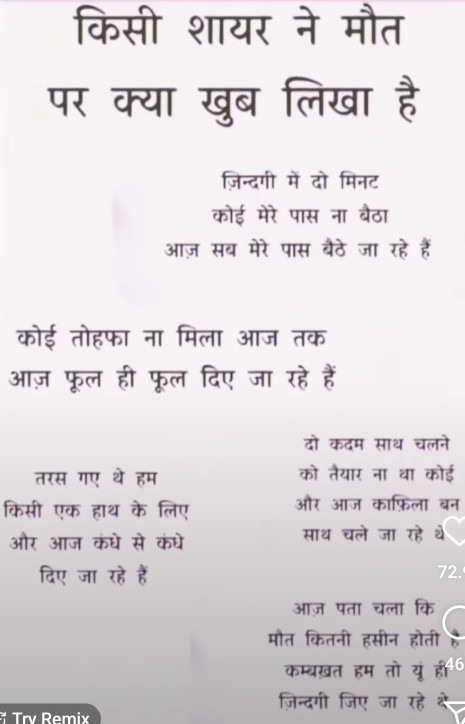 किसी शायर ने मौत
पर क्या खुब लिखा है
ज़िन्दगी में दो मिनट
कोई मेरे पास ना बैठा
आज़ सब मेरे पास बैठे जा रहे हैं
कोई तोहफा ना मिला आज तक
आज़ फूल ही फूल दिए जा रहे हैं
तरस गए थे हम
किसी एक हाथ के लिए
और आज कंधे से कंधे
दिए जा रहे हैं
दो कदम साथ चलने
को तैयार ना था कोई
और आज काफ़िला बन
साथ चले जा रहे थे
आज़ पता चला कि
मौत कितनी हसीन होती है
कम्बख़त हम तो यूं ही
ज़िन्दगी जिए जा रहे थे
Try Remix